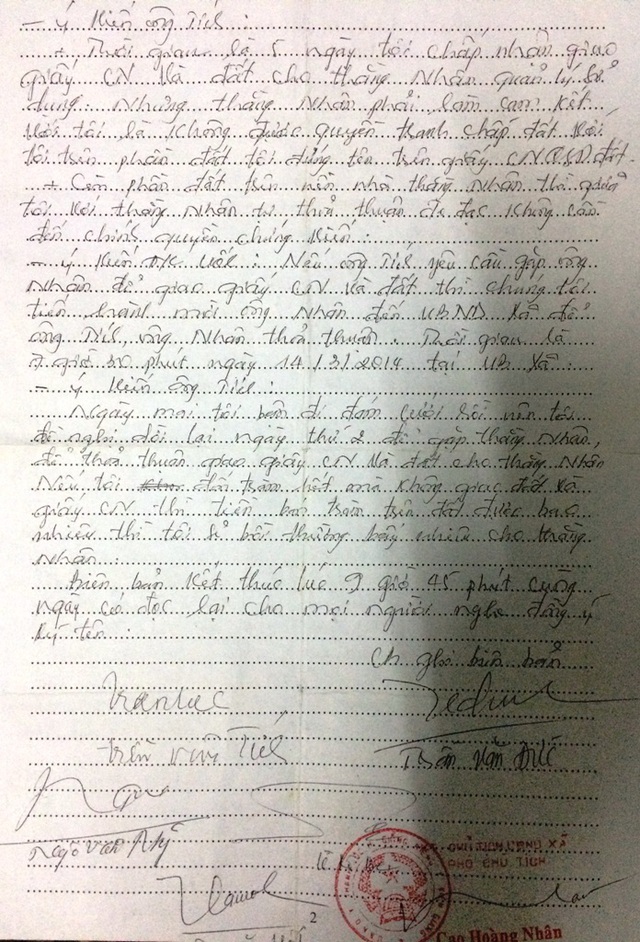 - Ý kiến ông Tiết :
+ Thời gian là 5 ngày tôi chấp nhận giao
giấy CN và đất cho thằng Nhân quản lý sử
dụng. Nhưng thằng Nhân phải làm cam kết
với tôi là không được quyền tranh chấp đất với
tôi trên phần đất tôi đứng tên trên giấy CNQSD đất.
+ Còn phần đất trên nền nhà thằng Nhân thì giữa
tôi với thằng Nhân tự thỏa thuận đo đạc không cần
đến chính quyền chứng kiến.
- Ý kiến : Nếu ông Tiết yêu cầu gặp ông
Nhân để giao giấy CN và đất thì chúng tôi
tiến hành mời ông Nhân đến UBND xã để
ông Tiết, ông Nhân thoả thuận. Thời gian là
giờ 30 phút ngày 14/3/2014 tại UB xã.
- Ý kiến ông Tiết :
Ngày mai tôi bận đi đám cưới rồi nên tôi
đề nghị dời lại ngày thứ 2 để gặp thằng Nhân,
để thoả thuận giao giấy CN và đất cho thằng Nhân
Nếu tôi mà không giao đất và
giấy CN thì tiền trên đất được bao
nhiêu thì tôi sẽ bồi thường bấy nhiêu cho thằng
Nhân.
Biên bản kết thúc lúc 9 giờ 45 phút cùng
ngày có đọc lại cho mọi người nghe đồng ý
ký tên.
ghi biên bản
Trần Văn Tiết
Trần Văn Đức
Ngô Văn
PHÓ CHỦ TỊCH
2
Cao Hoàng Nhân